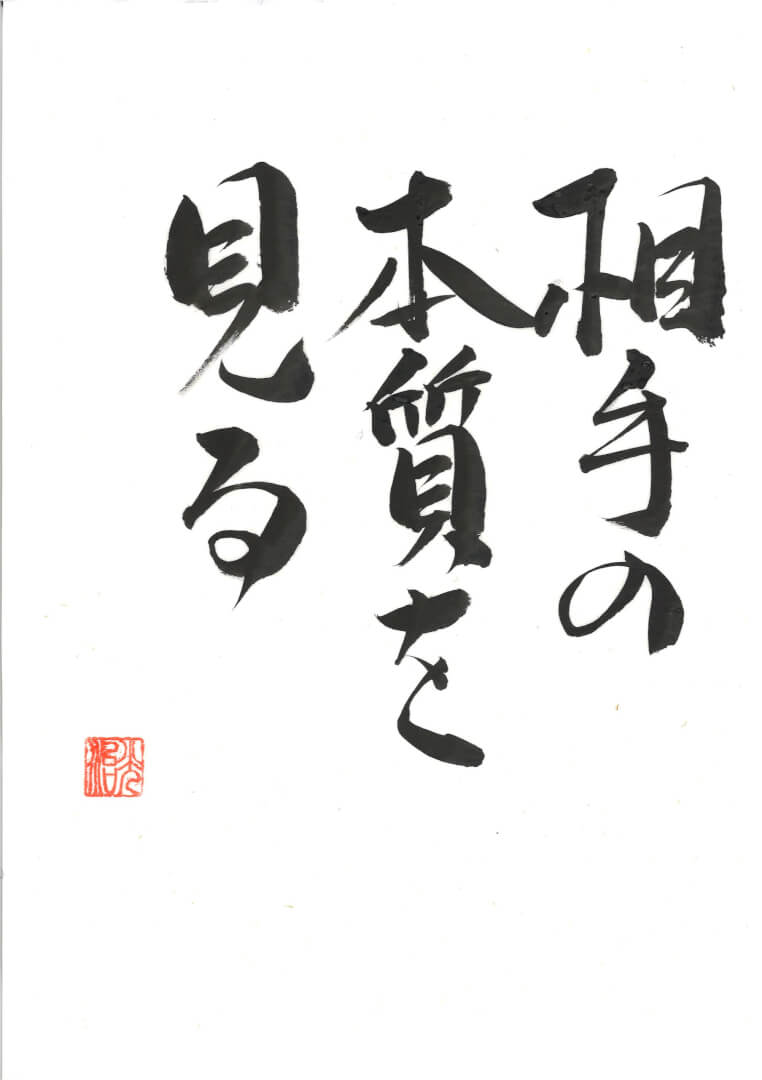 相手の
本質を
見る